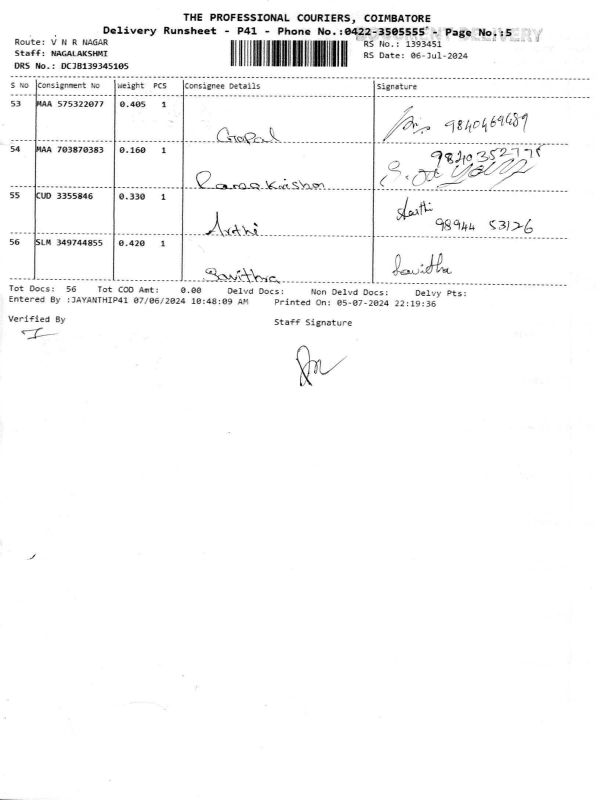 THE PROFESSIONAL COURIERS, COIMBATORE
Delivery Runsheet - P41 - Phone No.:0422-3505555 - Page No.:5
Route: V N R NAGAR RS No.: 1393451
Staff: NAGALAKSHMI RS Date: 06-Jul-2024
DRS No.: DCJB139345105
S No Consignment No Weight PCS Consignee Details Signature
53 MAA 575322077 0.405 1
Gopal 9840469489
54 MAA 703870383 0.160 1
55 CUD 3355846 0.330 1
Arthi Aarthi
98944 53126
56 SLM 349744855 0.420 1
Savithra Savitha
Tot Docs: 56 Tot COD Amt: 0.00 Delvd Docs: Non Delvd Docs: Delvy Pts:
Entered By :JAYANTHIP41 07/06/2024 10:48:09 AM Printed On: 05-07-2024 22:19:36
Verified By Staff Signature